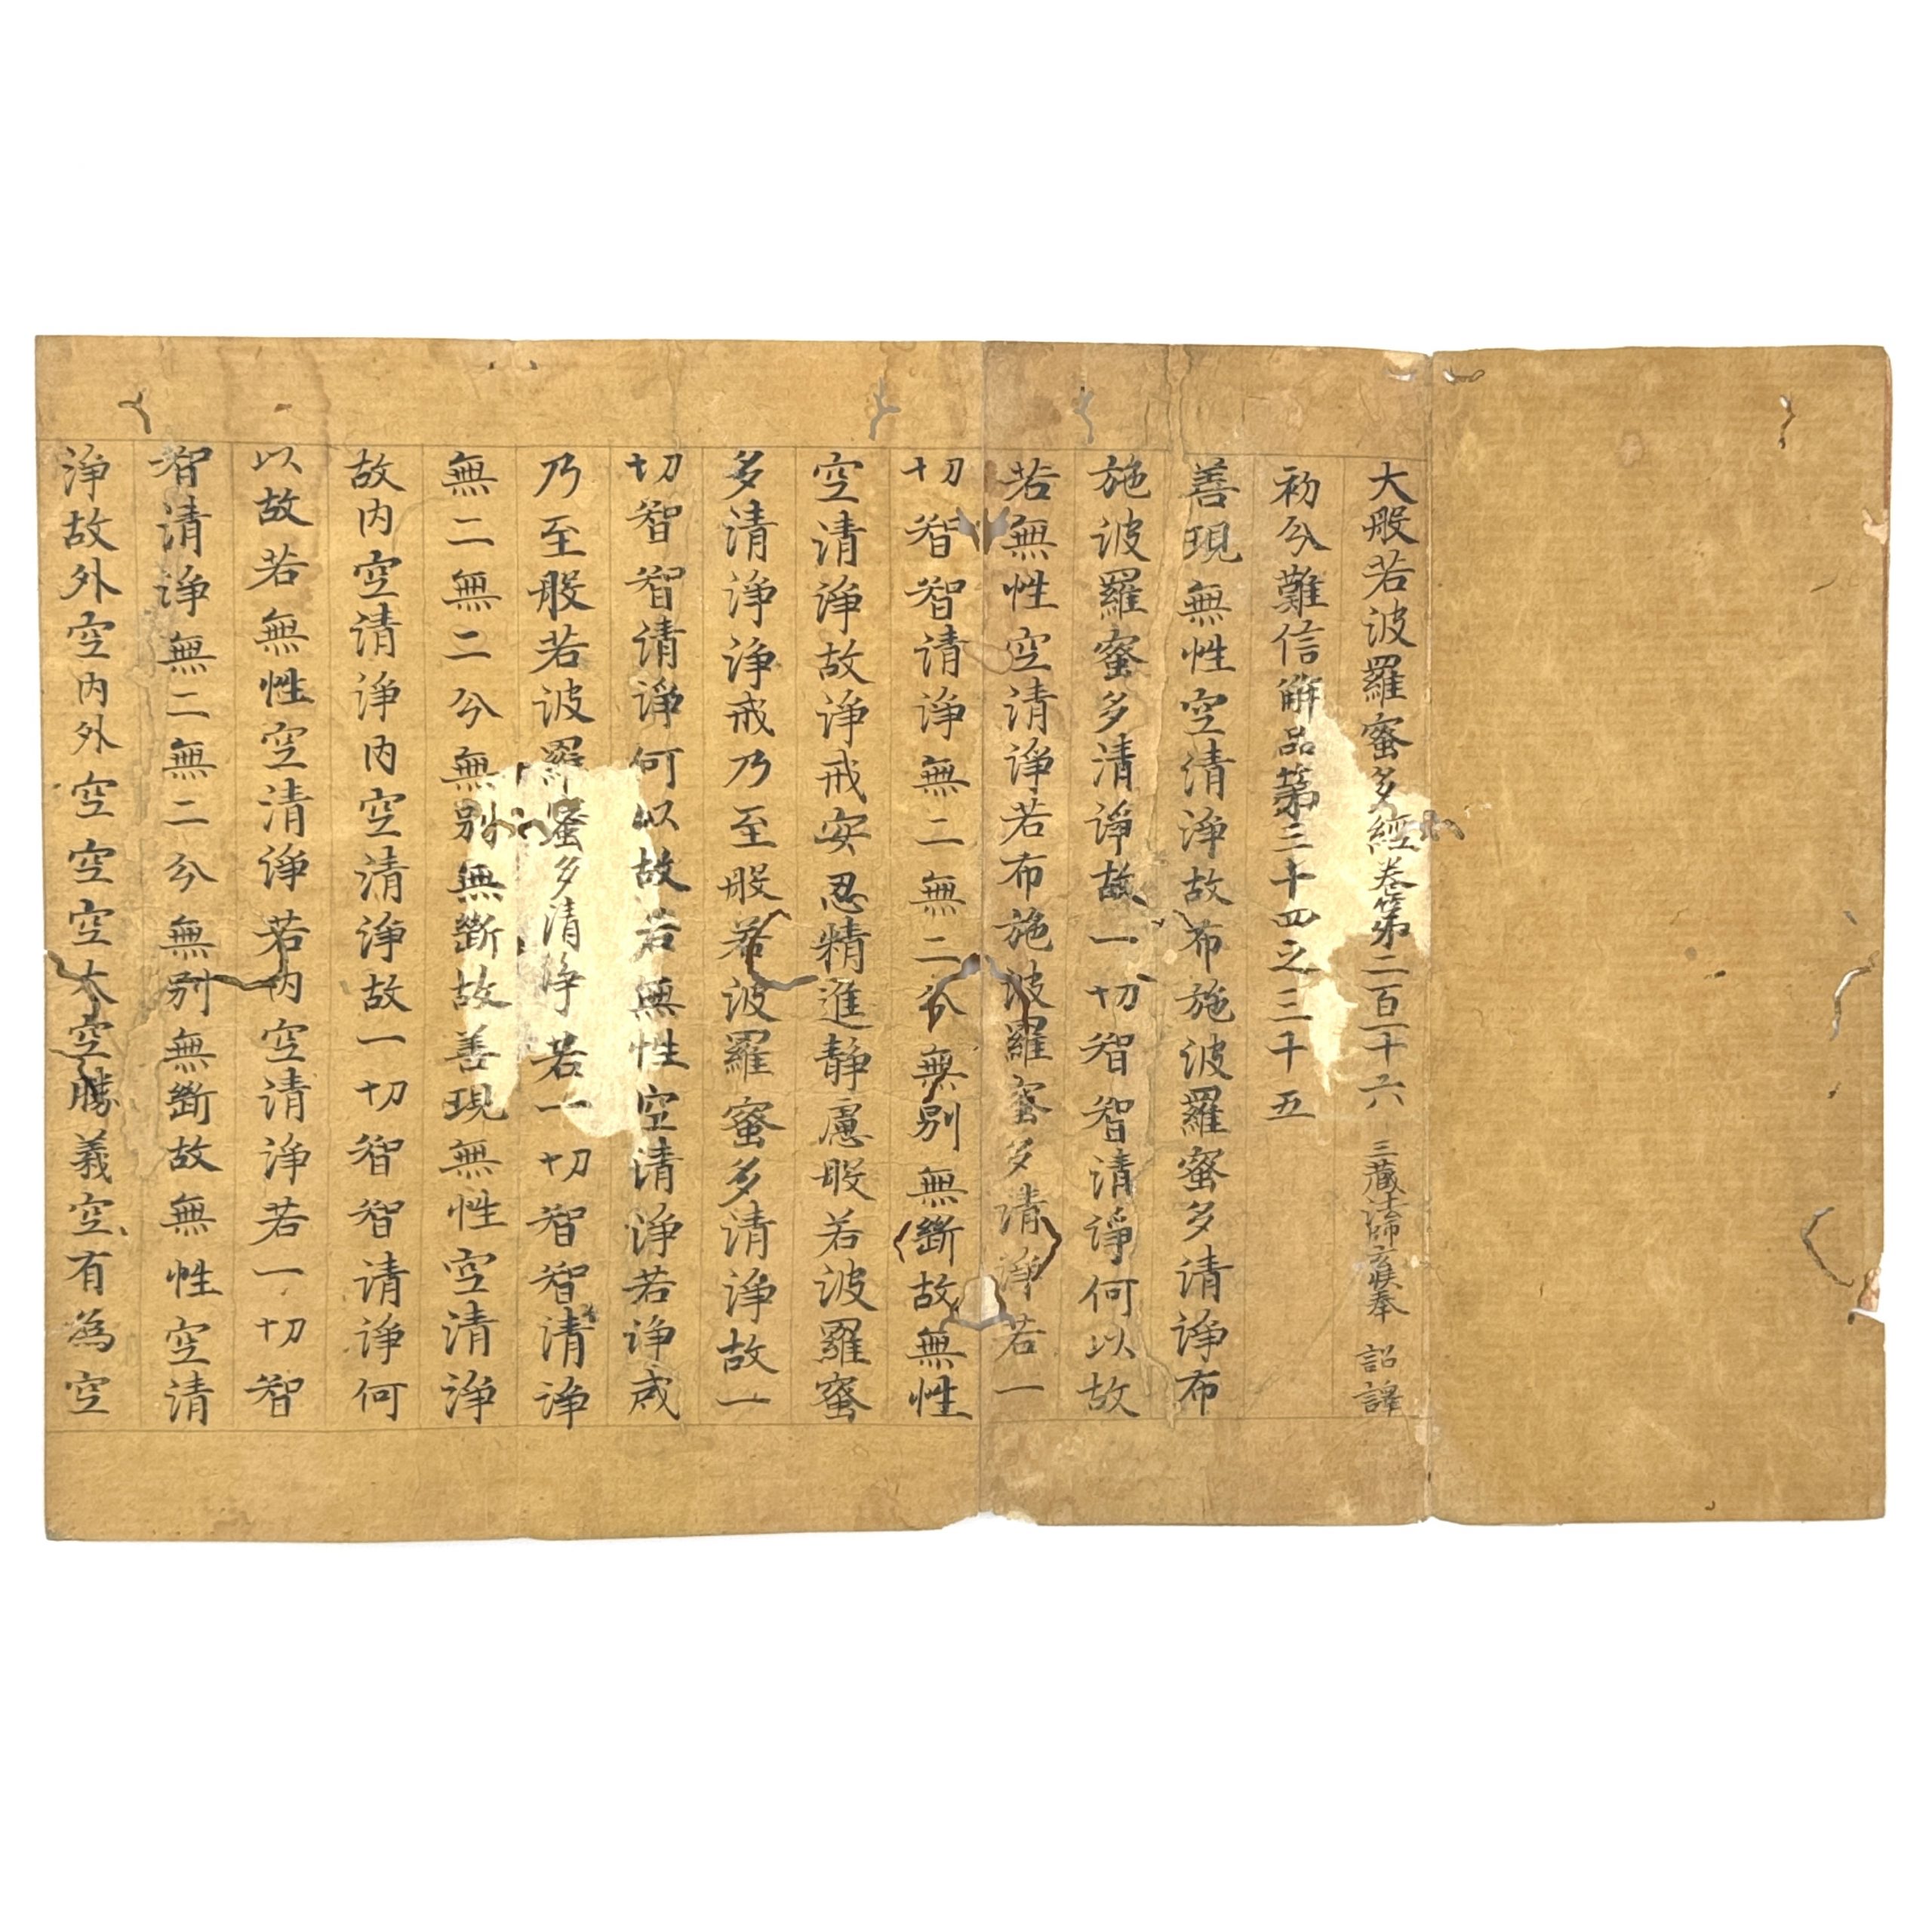 大般若波羅蜜多經卷第二百一十六 三藏法師玄奘奉 詔譯
初分難信解品第三十四之三十五
善現無性空清淨故布施波羅蜜多清淨布
施波羅蜜多清淨故一切智智清淨何以故
若無性空清淨若布施波羅蜜多清淨若一
切智智清淨無二無二分無別無斷故無性
空清淨故淨戒安忍精進靜慮般若波羅蜜
多清淨淨戒乃至般若波羅蜜多清淨故一
切智智清淨何以故若無性空清淨若淨戒
乃至般若波羅蜜多清淨若一切智智清淨
無二無二分無別無斷故善現無性空清淨
故內空清淨內空清淨故一切智智清淨何
以故若無性空清淨若內空清淨若一切智
智清淨無二無二分無別無斷故無性空清
淨故外空內外空空空大空勝義空有為空